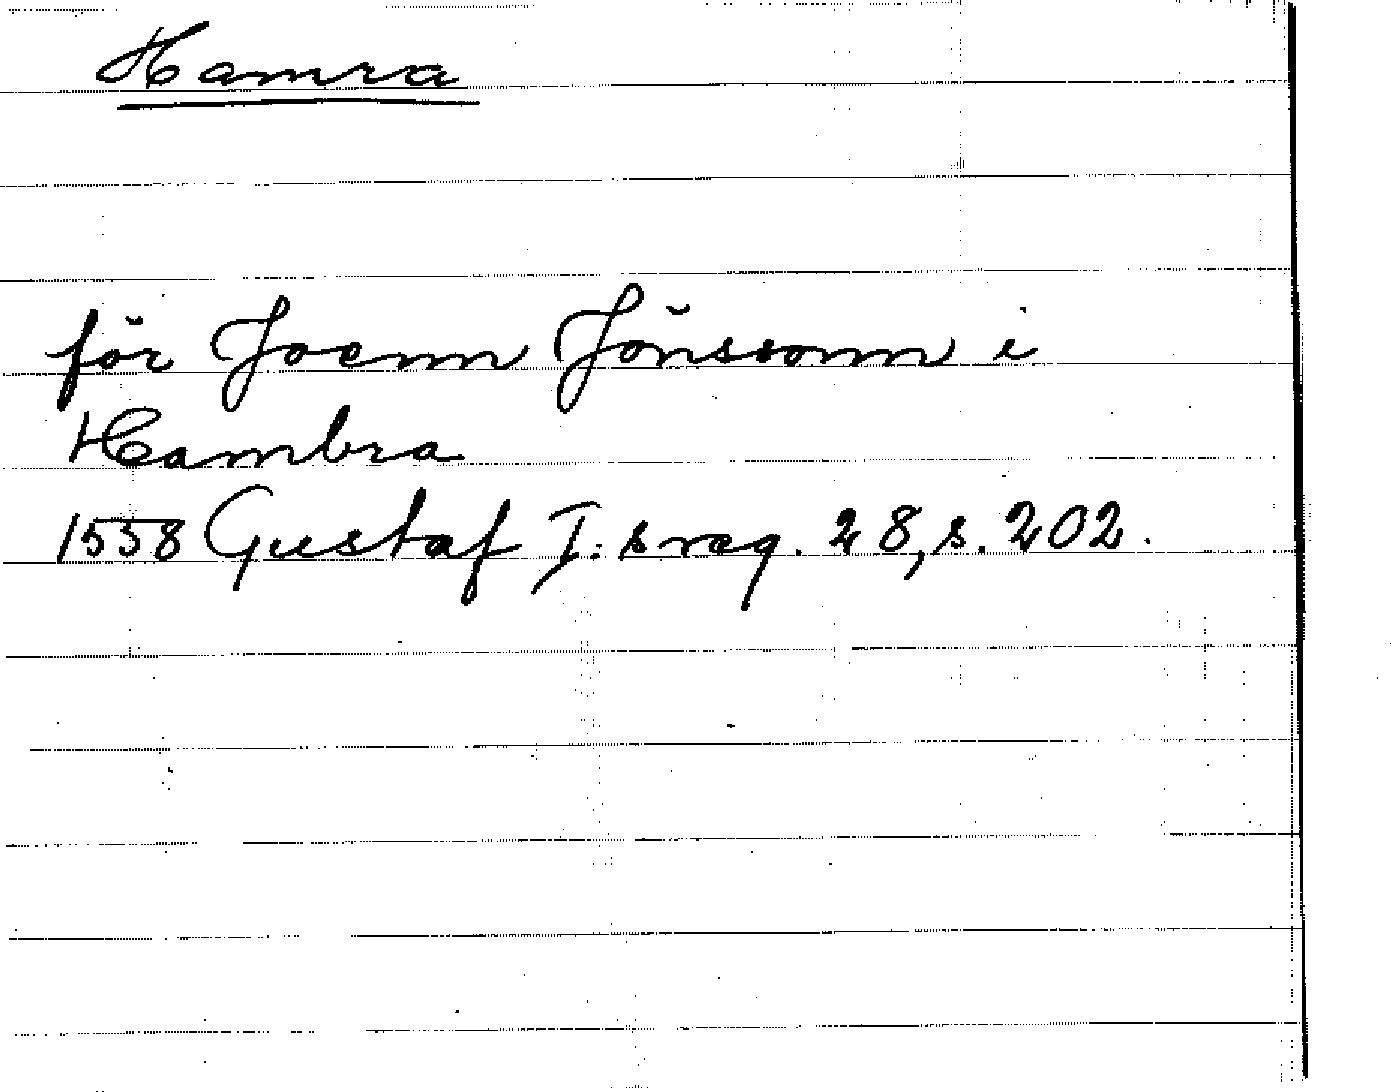 Hamra
för Joenn Jönssonn i
Hambra
1558 Gustaf I:s reg. 28, s. 202.